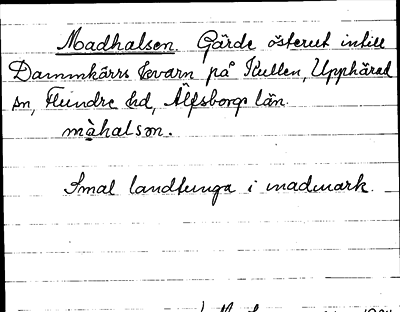 Madhalsen. Gärde österut intill
Dammkärrs kvarn på Kullen, Upphärad
sn, Flundre hd, Älfsborgs län.
màhalsən.
Smal landtunga i madmark.